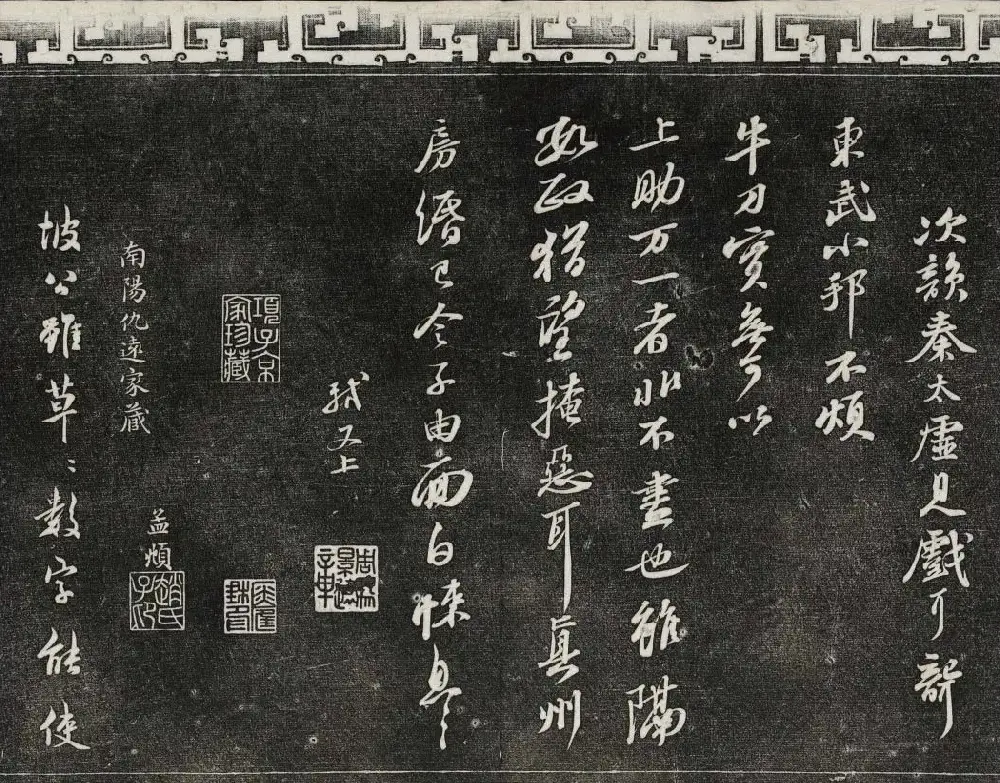 次韻秦太虛見戲耳聾
東武小邦不煩
牛刀實無可以
上助万一者非不盡也雖隔
數政猶望掩惡耳真州
房緡已令子由面白悚息〻
軾又上
項子京
家珍藏
南陽仇遠家藏
孟頫
坡公雖草〻數字能使